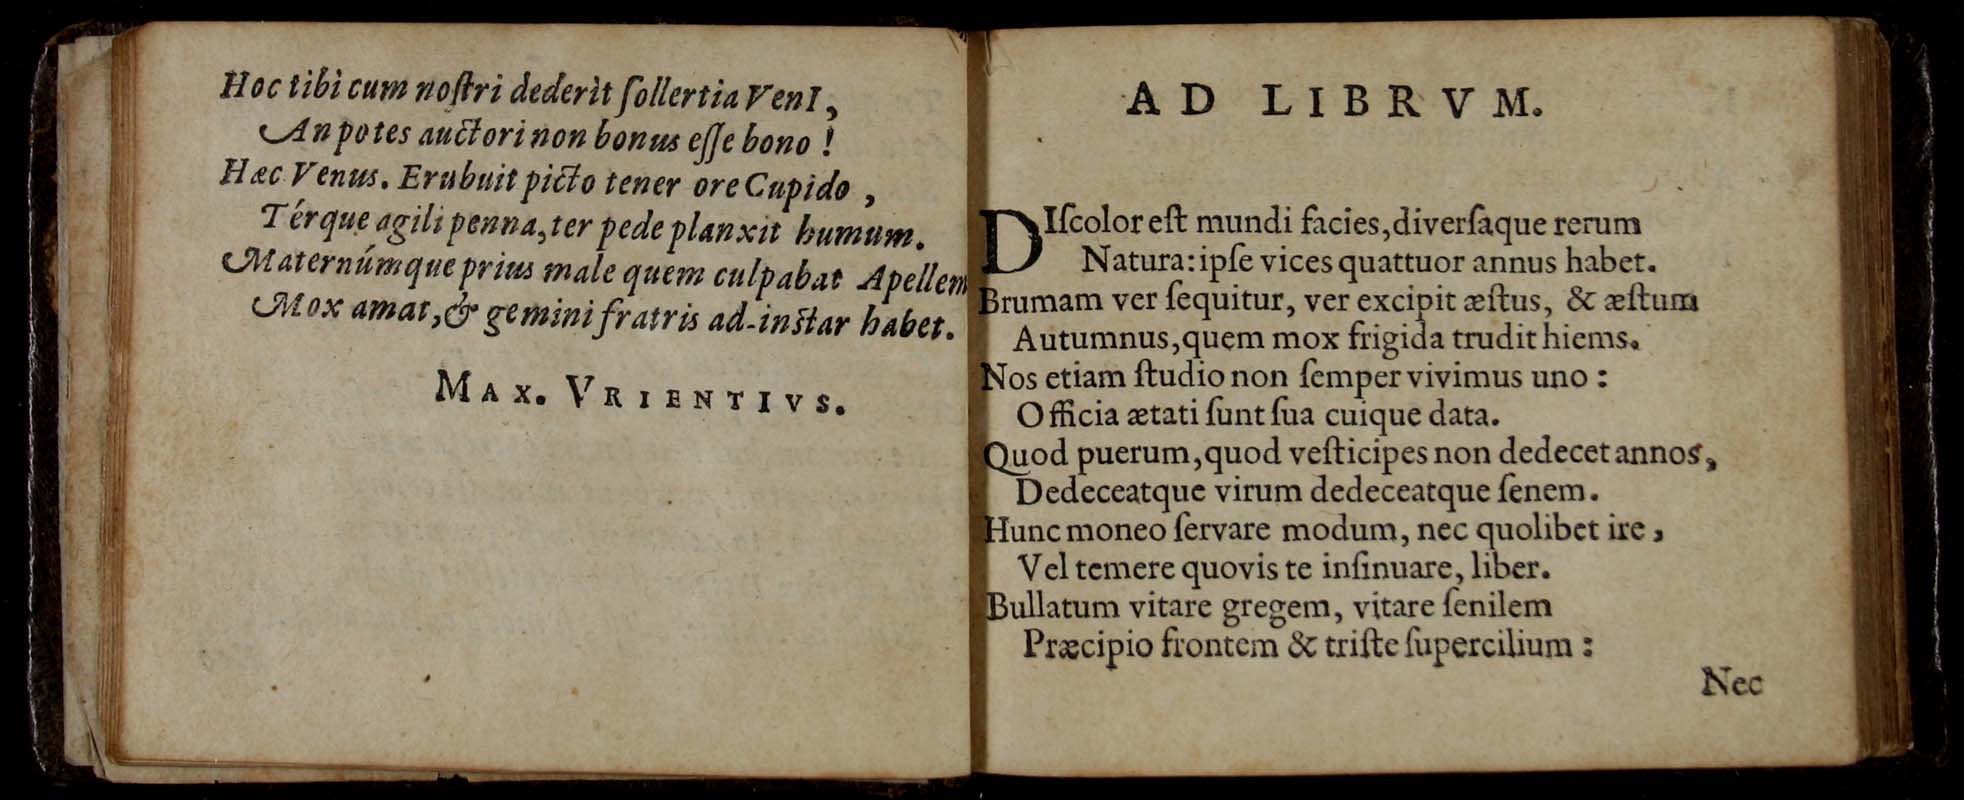 Hoc tibi cum noſtri dederìt ſollertia VenI,
An potes auctori non bonus eſſe bono!
Hæc Venus. Erubuit picto tener ore Cupido,
Térque agili penna, ter pede planxit humum.
Maternúmque prius male quem culpabat Apellem
Mox amat, & gemini fratris ad-inſtar habet.
MAX. VRIENTIVS.
AD LIBRVM.
DIſcolor eſt mundi facies, diverſaque rerum
Natura: ipſe vices quattuor annus habet.
Brumam ver ſequitur, ver excipit æſtus, & æſtum
Autumnus, quem mox frigida trudit hiems.
Nos etiam ſtudio non ſemper vivimus uno:
Officia ætati ſunt ſua cuique data.
Quod puerum, quod veſticipes non dedecet annos,
Dedeceatque virum dedeceatque ſenem.
Hunc moneo ſervare modum, nec quolibet ire,
Vel temere quovis te inſinuare, liber.
Bullatum vitare gregem, vitare ſenilem
Præcipio frontem & triſte ſupercilium:
Nec